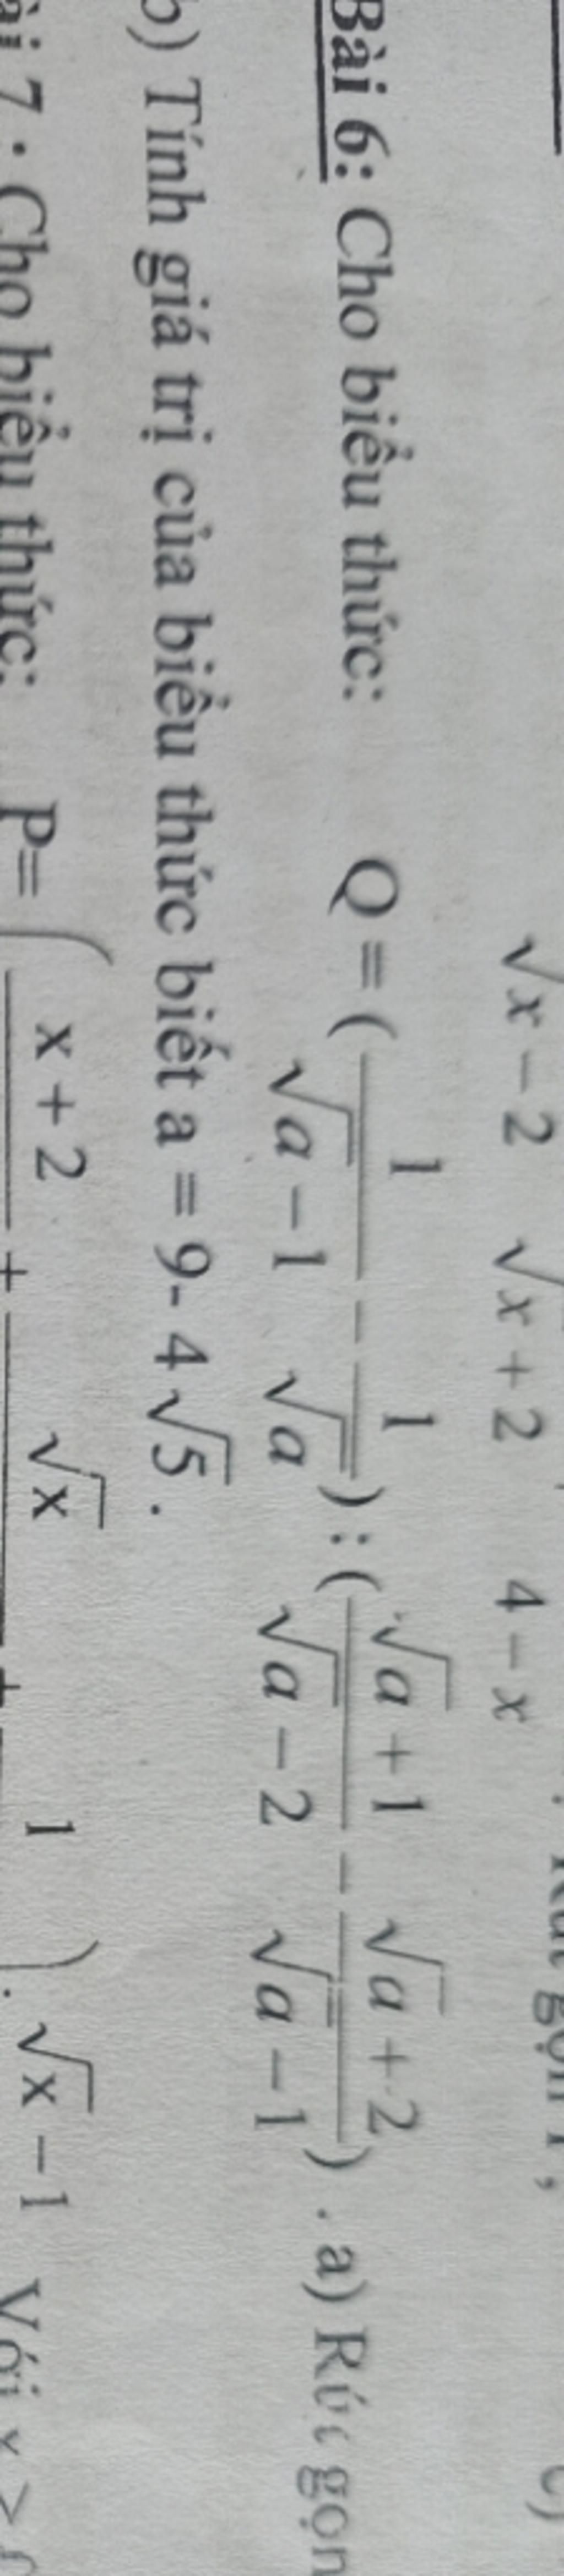 √x − 2 √x + 2 4 − x
Bài 6: Cho biểu thức: Q = ( 1/(√a − 1) − 1/√a ) : ( (√a + 1)/(√a − 2) − (√a + 2)/(√a − 1) ) . a) Rút gọn
b) Tính giá trị của biểu thức biết a = 9- 4√5 .
ài 7 : Cho biểu thức: P= ( x + 2 + √x + 1 ) : √x − 1 Với x >